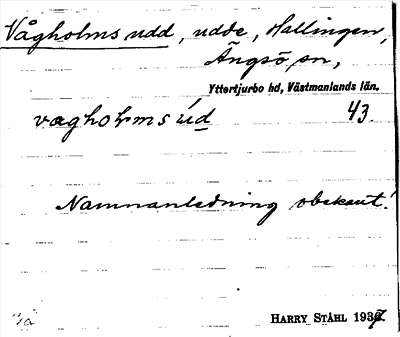 Vågholms udd, udde, Hallingen,
Ängsö sn,
Yttertjurbo hd, Västmanlands län.
vagholms ud 43.
Namnanledning obekant!
HARRY STÅHL 1937.